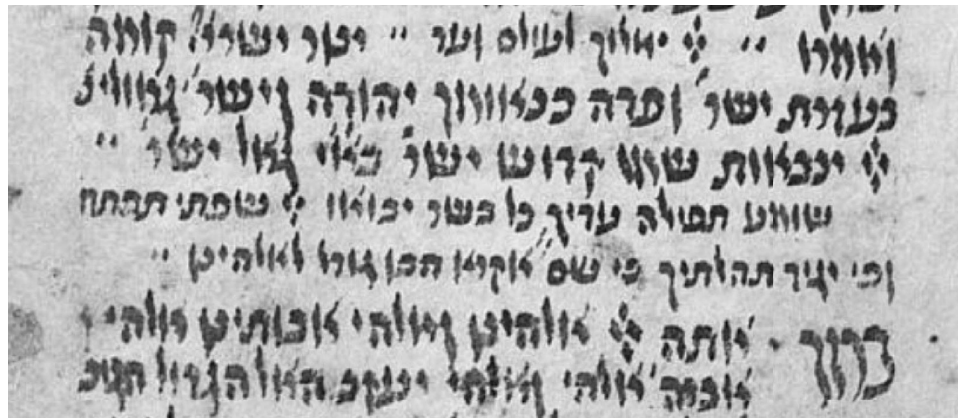 ואמרו ״ ייי ימלוך לעולם ועד ״ צור ישראל קומה
בעזרת ישר׳ ופדה כנאומך יהודה וישר׳ גואלינו
ייי צבאות שמו קדוש ישר׳ ב׳א׳י׳ גאל ישר׳ ״
שומע תפילה עדיך כל בשר יבואו ייי שפתי תפתח
ופי יגיד תהלתיך כי שם ייי אקרא הבו גודל לאלהינו ״
ברוך אתה ייי אלהינו ואלהי אבותינו אלהי
אברהם אלהי ואלהי יעקב האל הגדול הגבור